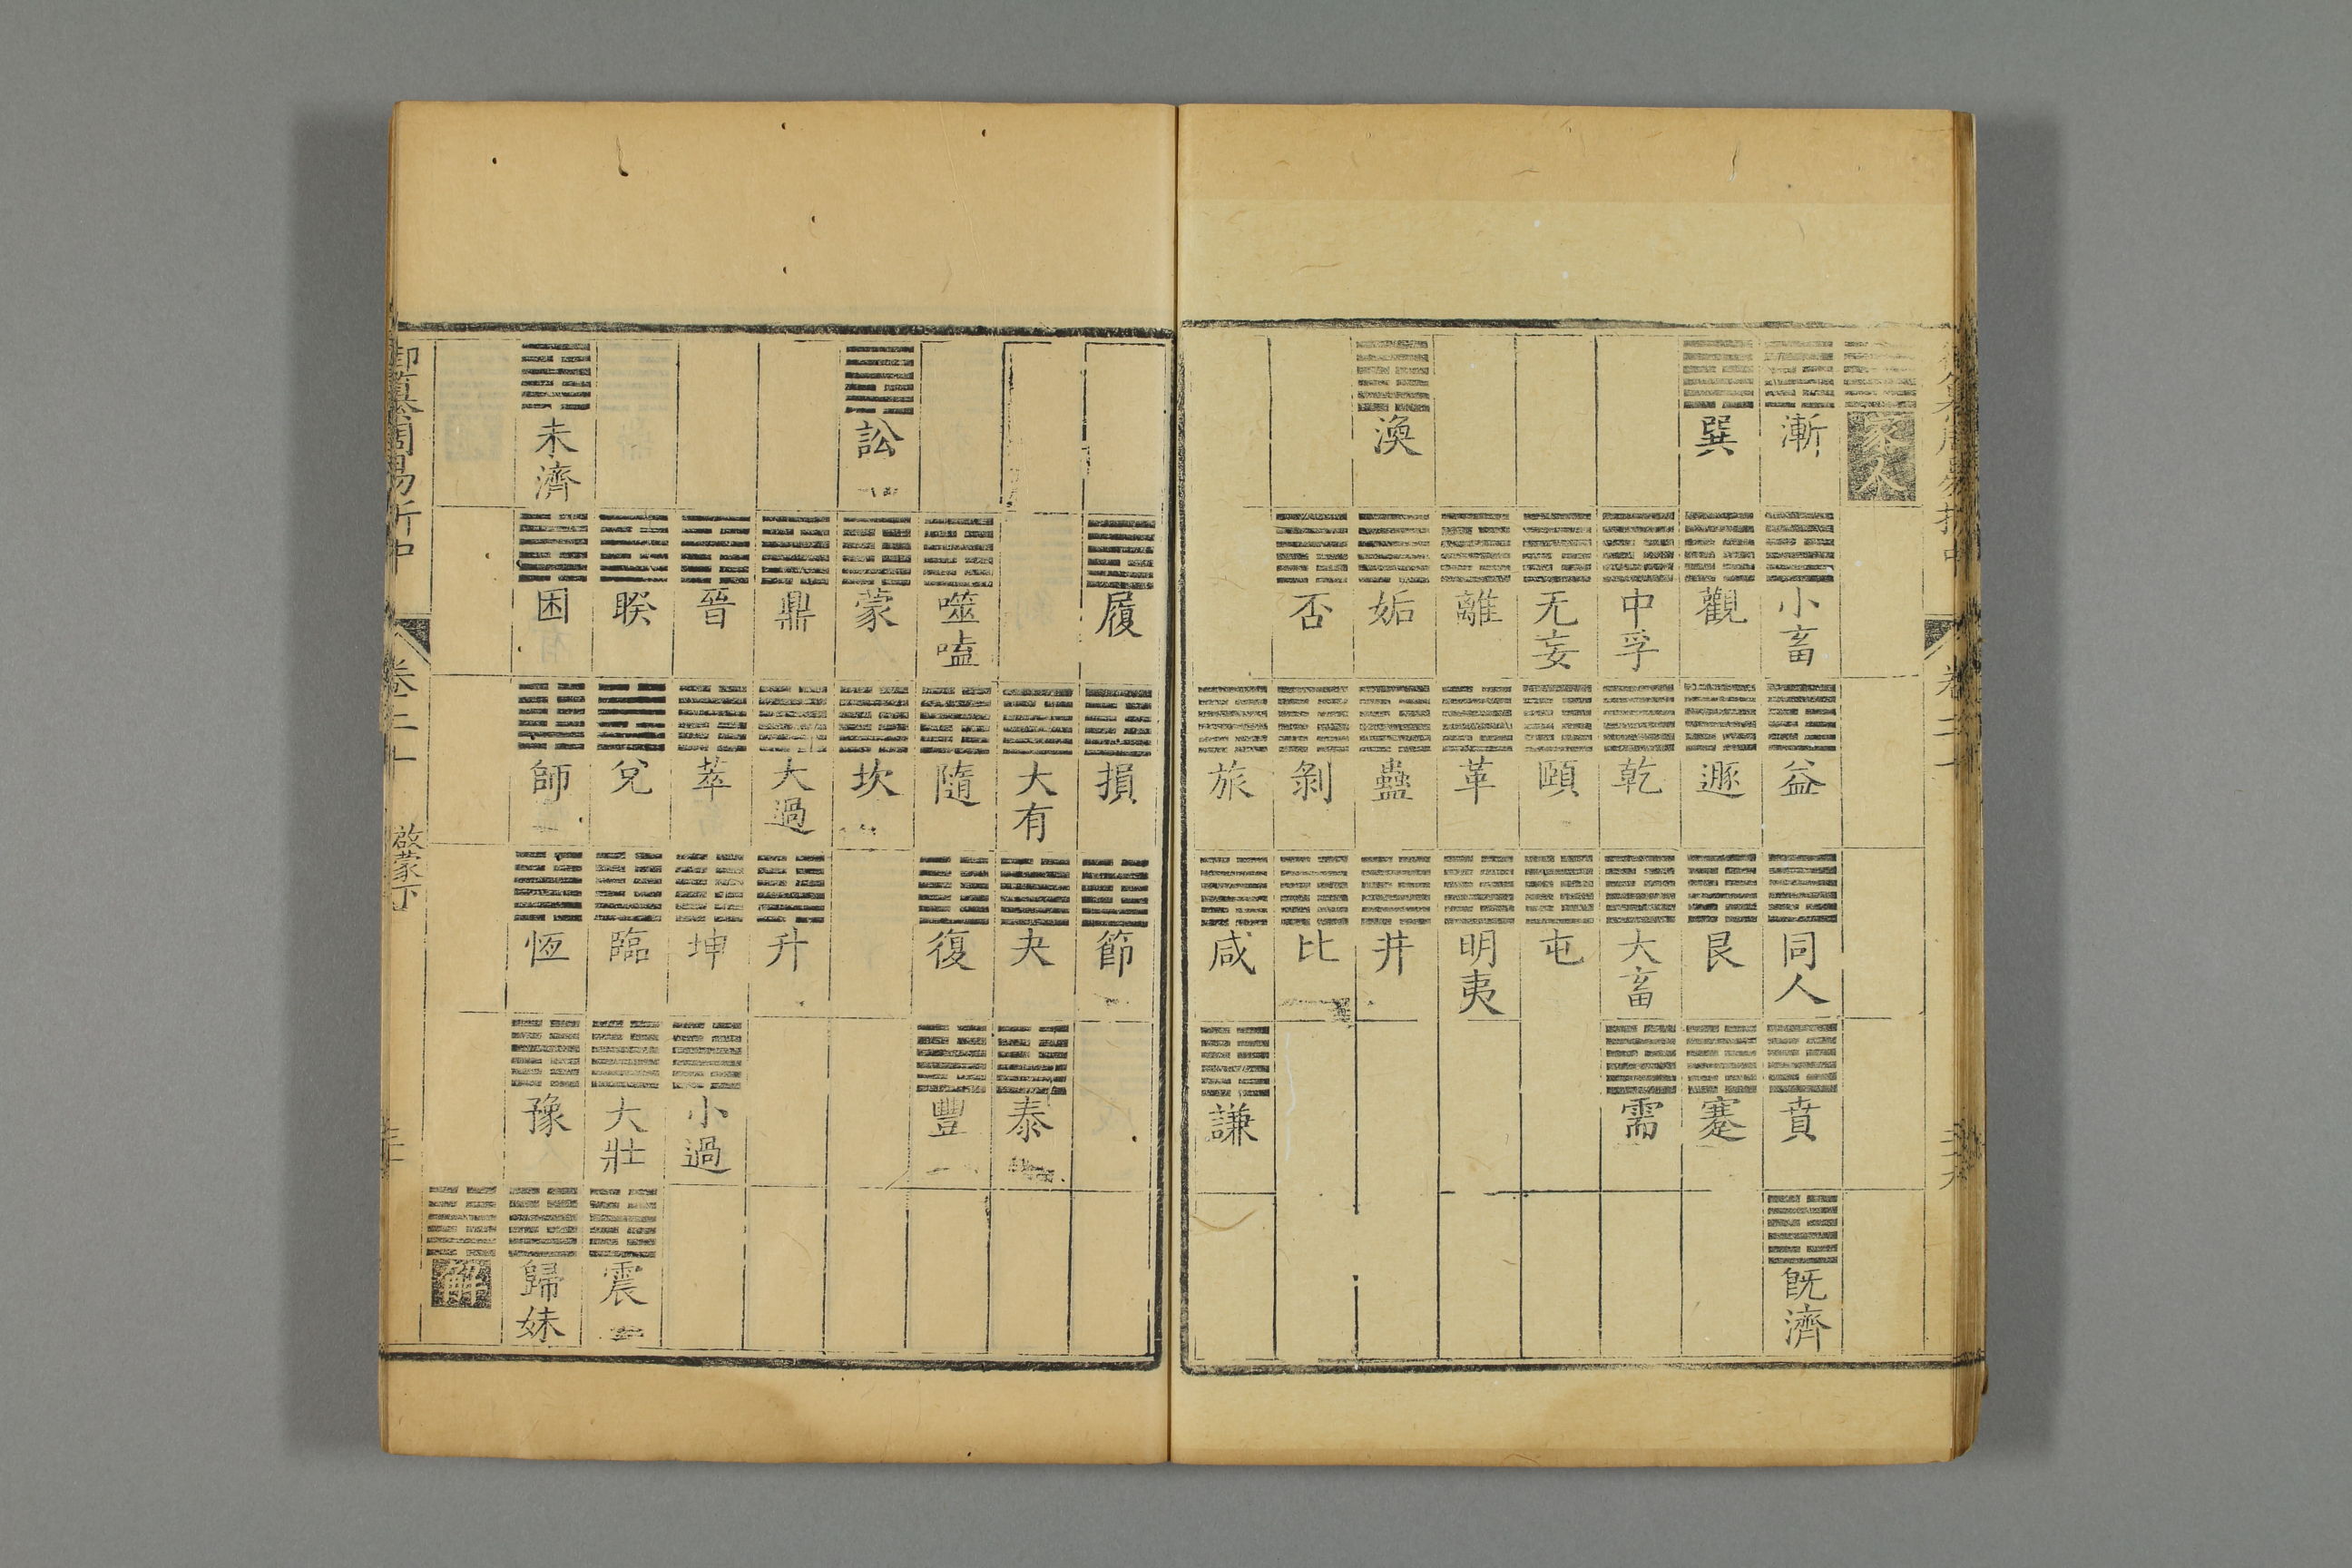 家人
漸 小畜 益 同人 賁 既濟
巽 觀 遯 艮 蹇
中孚 乾 大畜 需
无妄 頤 屯
離 革 明夷
渙 姤 蠱 井
否 剝 比
旅 咸 謙
履 損 節
大有 夬 泰
噬嗑 隨 復 豐
訟 蒙 坎
鼎 大過 升
晉 萃 坤 小過
睽 兌 臨 大壯 震
未濟 困 師 恆 豫 歸妹
解
御纂周易折中 卷二十 啟蒙下